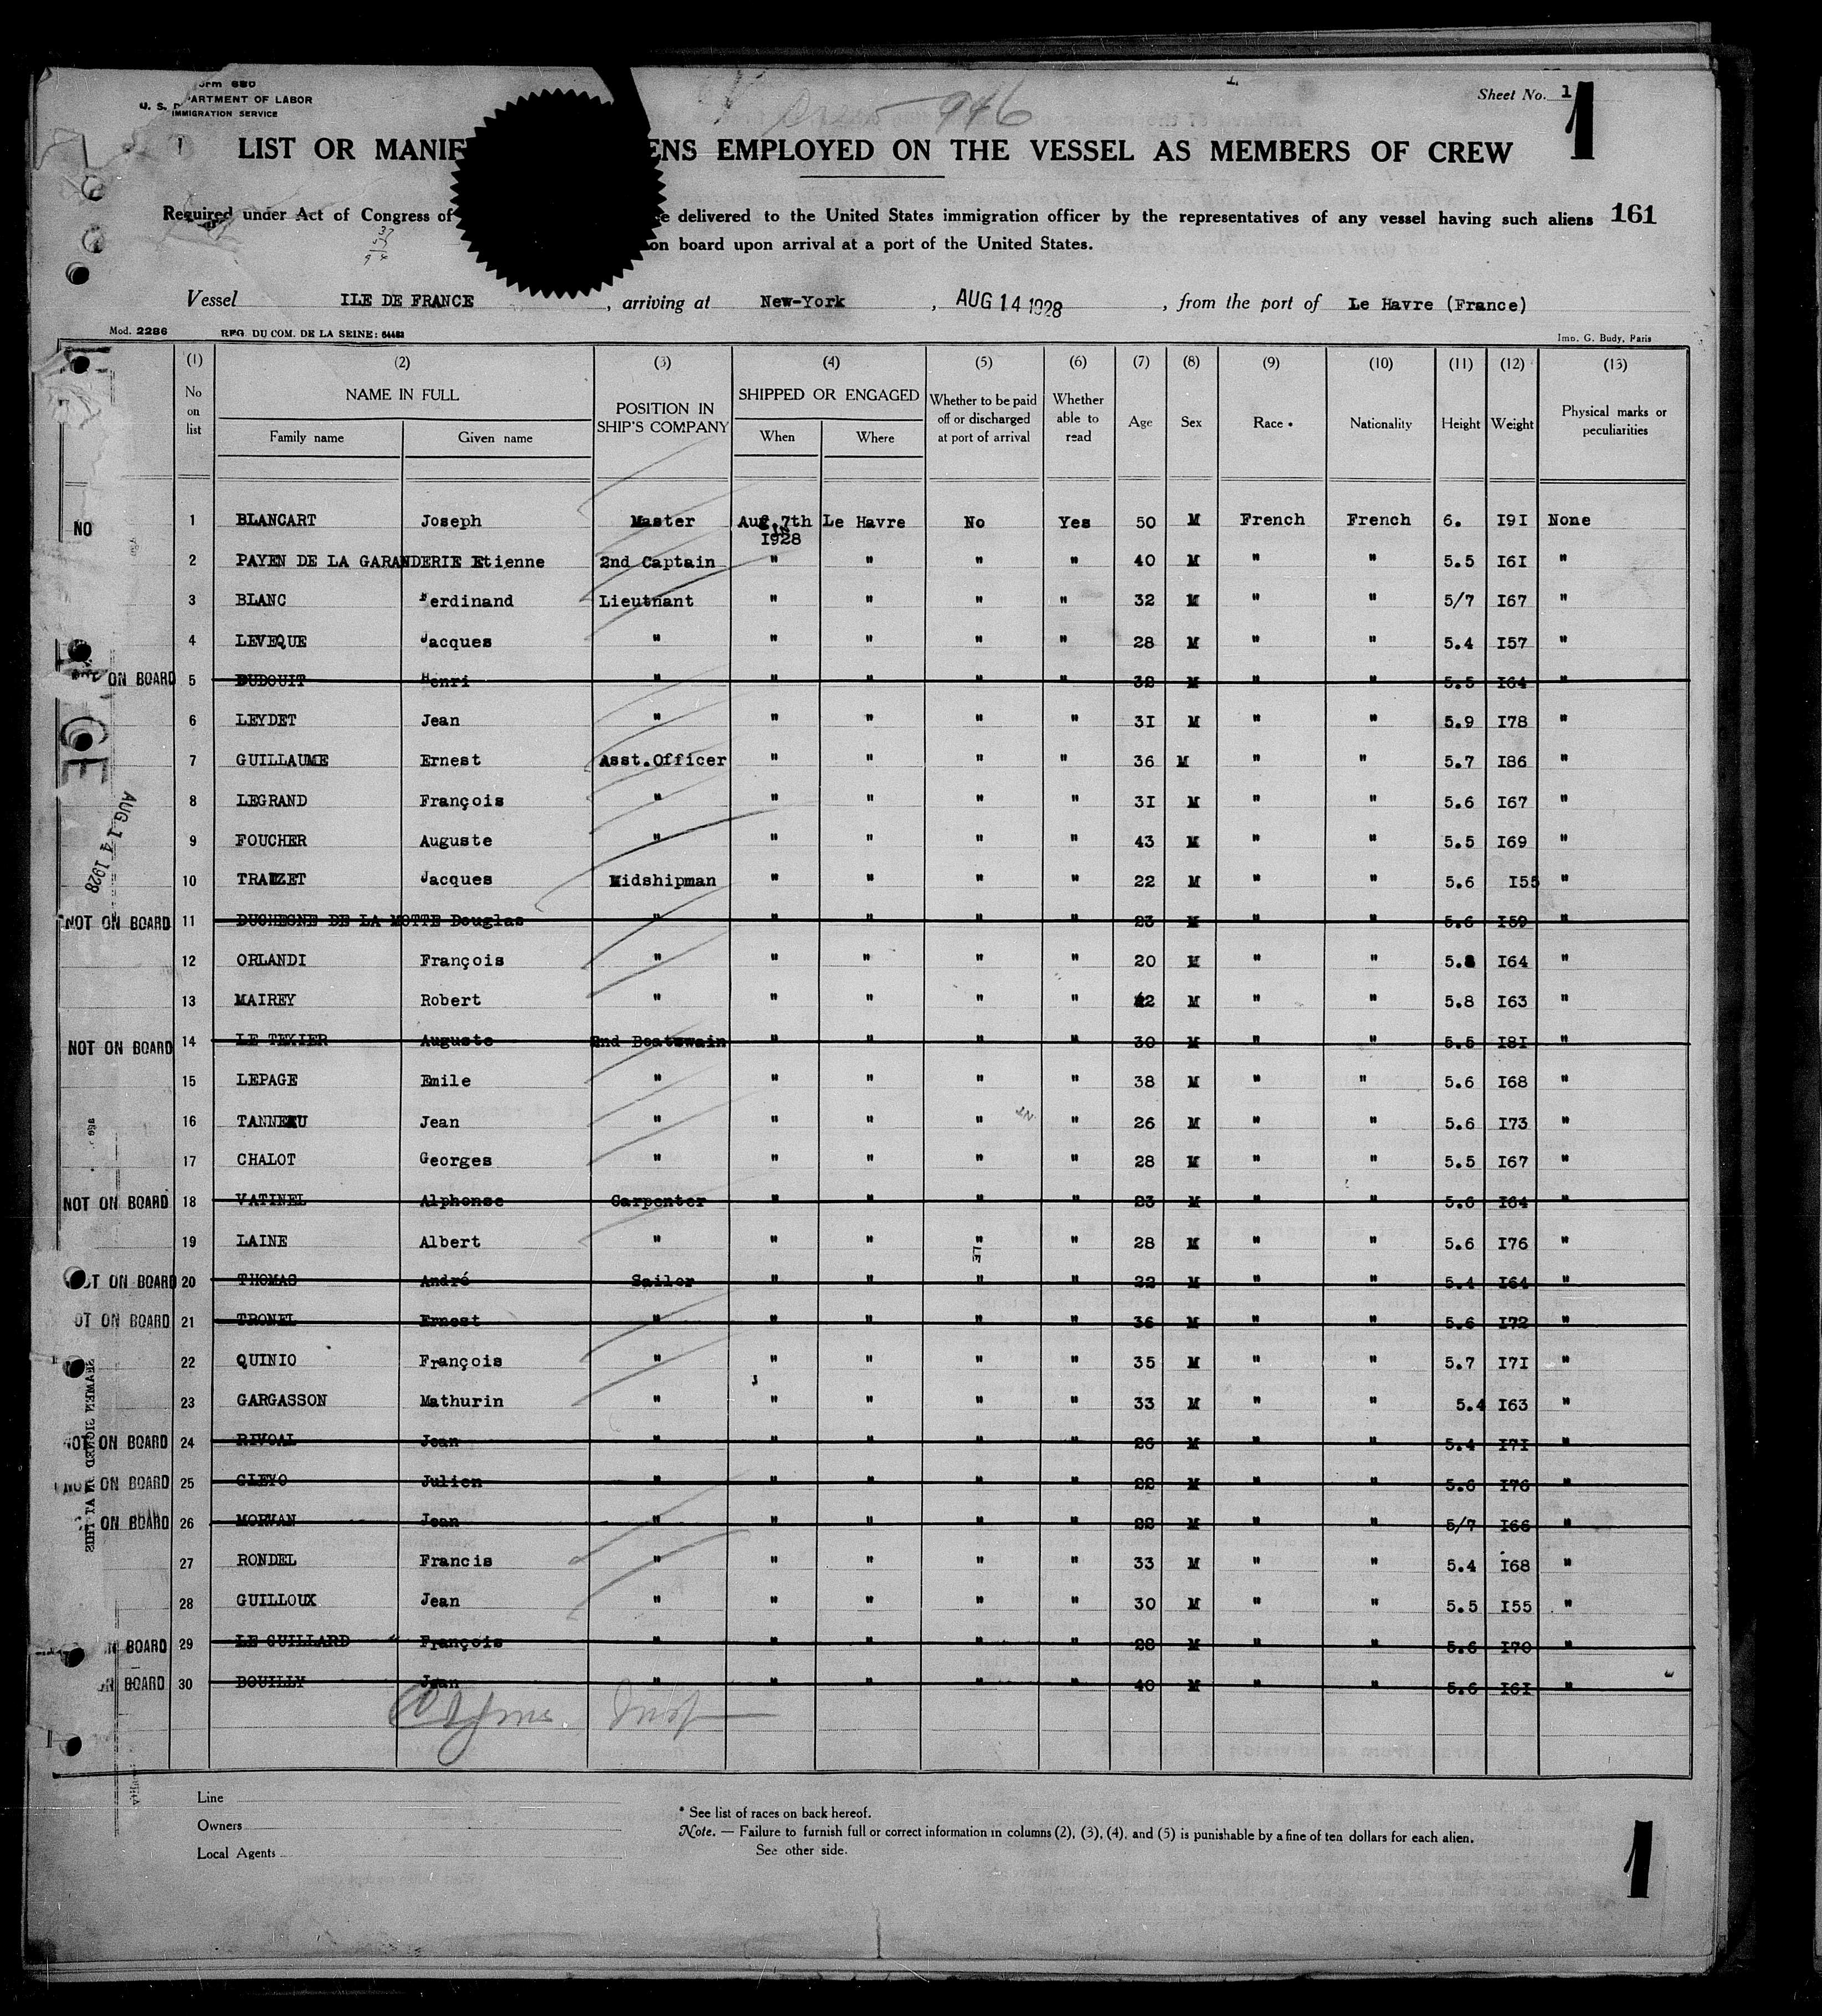 Form 680
U. S. DEPARTMENT OF LABOR
IMMIGRATION SERVICE
Crew 946
Sheet No. 1
1
LIST OR MANIF ENS EMPLOYED ON THE VESSEL AS MEMBERS OF CREW
Required under Act of Congress of e delivered to the United States immigration officer by the representatives of any vessel having such aliens 161
on board upon arrival at a port of the United States.
Vessel ILE DE FRANCE , arriving at New-York , AUG 14 1928 , from the port of Le Havre (France)
Mod. 2286 REG. DU COM. DE LA SEINE: Imp. G. Budy, Paris
(1) (2) (3) (4) (5) (6) (7) (8) (9) (10) (11) (12) (13)
No on list NAME IN FULL POSITION IN SHIP'S COMPANY SHIPPED OR ENGAGED Whether to be paid off or discharged at port of arrival Whether able to read Age Sex Race * Nationality Height Weight Physical marks or peculiarities
Family name Given name When Where
NO 1 BLANCART Joseph Master Aug. 7th 1928 Le Havre No Yes 50 M French French 6. I9I None
2 PAYEN DE LA GARANDERIE Etienne 2nd Captain " " " " 40 M " " 5.5 I6I "
3 BLANC Ferdinand Lieutnant " " " " 32 M " " 5/7 I67 "
4 LEVEQUE Jacques " " " " " 28 M " " 5.4 I57 "
ON BOARD 5 DUDOUIT Henri " " " " " 32 M " " 5.5 I64 "
6 LEYDET Jean " " " " " 3I M " " 5.9 I78 "
7 GUILLAUME Ernest Asst.Officer " " " " 36 M " " 5.7 I86 "
8 LEGRAND François " " " " " 3I M " " 5.6 I67 "
9 FOUCHER Auguste " " " " " 43 M " " 5.5 I69 "
AUG 14 1928
10 TRAUZET Jacques Midshipman " " " " 22 M " " 5.6 I55 "
NOT ON BOARD 11 DUCHESNE DE LA MOTTE Douglas " " " " " 23 M " " 5.6 I59 "
12 ORLANDI François " " " " " 20 M " " 5.8 I64 "
13 MAIREY Robert " " " " " 22 M " " 5.8 I63 "
NOT ON BOARD 14 LE TEXIER Auguste 2nd Boatswain " " " " 30 M " " 5.5 I8I "
15 LEPAGE Emile " " " " " 38 M " " 5.6 I68 "
16 TANNEAU Jean " " " " " 26 M " " 5.6 I73 "
17 CHALOT Georges " " " " " 28 M " " 5.5 I67 "
NOT ON BOARD 18 VATINEL Alphonse Carpenter " " " " 23 M " " 5.6 I64 "
19 LAINE Albert " " " " " 28 M " " 5.6 I76 "
OT ON BOARD 20 THOMAS André Sailor " " " " 22 M " " 5.4 I64 "
OT ON BOARD 21 TRONEL Ernest " " " " " 36 M " " 5.6 I72 "
22 QUINIO François " " " " " 35 M " " 5.7 I7I "
23 GARGASSON Mathurin " " " " " 33 M " " 5.4 I63 "
NOT ON BOARD 24 RIVOAL Jean " " " " " 26 M " " 5.4 I7I "
NOT ON BOARD 25 GLEYO Julien " " " " " 22 M " " 5.6 I76 "
ON BOARD 26 MORVAN Jean " " " " " 22 M " " 5/7 I66 "
27 RONDEL Francis " " " " " 33 M " " 5.4 I68 "
28 GUILLOUX Jean " " " " " 30 M " " 5.5 I55 "
N BOARD 29 LE GUILLARD François " " " " " 28 M " " 5.6 I70 "
ON BOARD 30 BOUILLY Jean " " " " " 40 M " " 5.6 I6I "
Line
Owners
Local Agents
* See list of races on back hereof.
Note. — Failure to furnish full or correct information in columns (2), (3), (4), and (5) is punishable by a fine of ten dollars for each alien.
See other side.
1